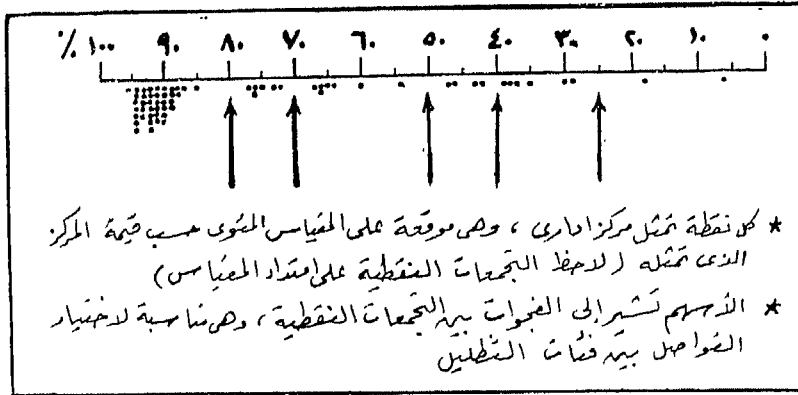 % ١٠٠ ٩٠ ٨٠ ٧٠ ٦٠ ٥٠ ٤٠ ٣٠ ٢٠ ١٠ ٠
* كل نقطة تمثل مركز ادارى ، وهى موقعة على المقياس المئوى حسب قيمة المركز
الذى تمثله ( لاحظ التجمعات النقطية على امتداد المقياس )
* الأسهم تشير إلى الفجوات بين التجمعات النقطية ، وهى مناسبة لاختيار
الفواصل بين فئات التظليل